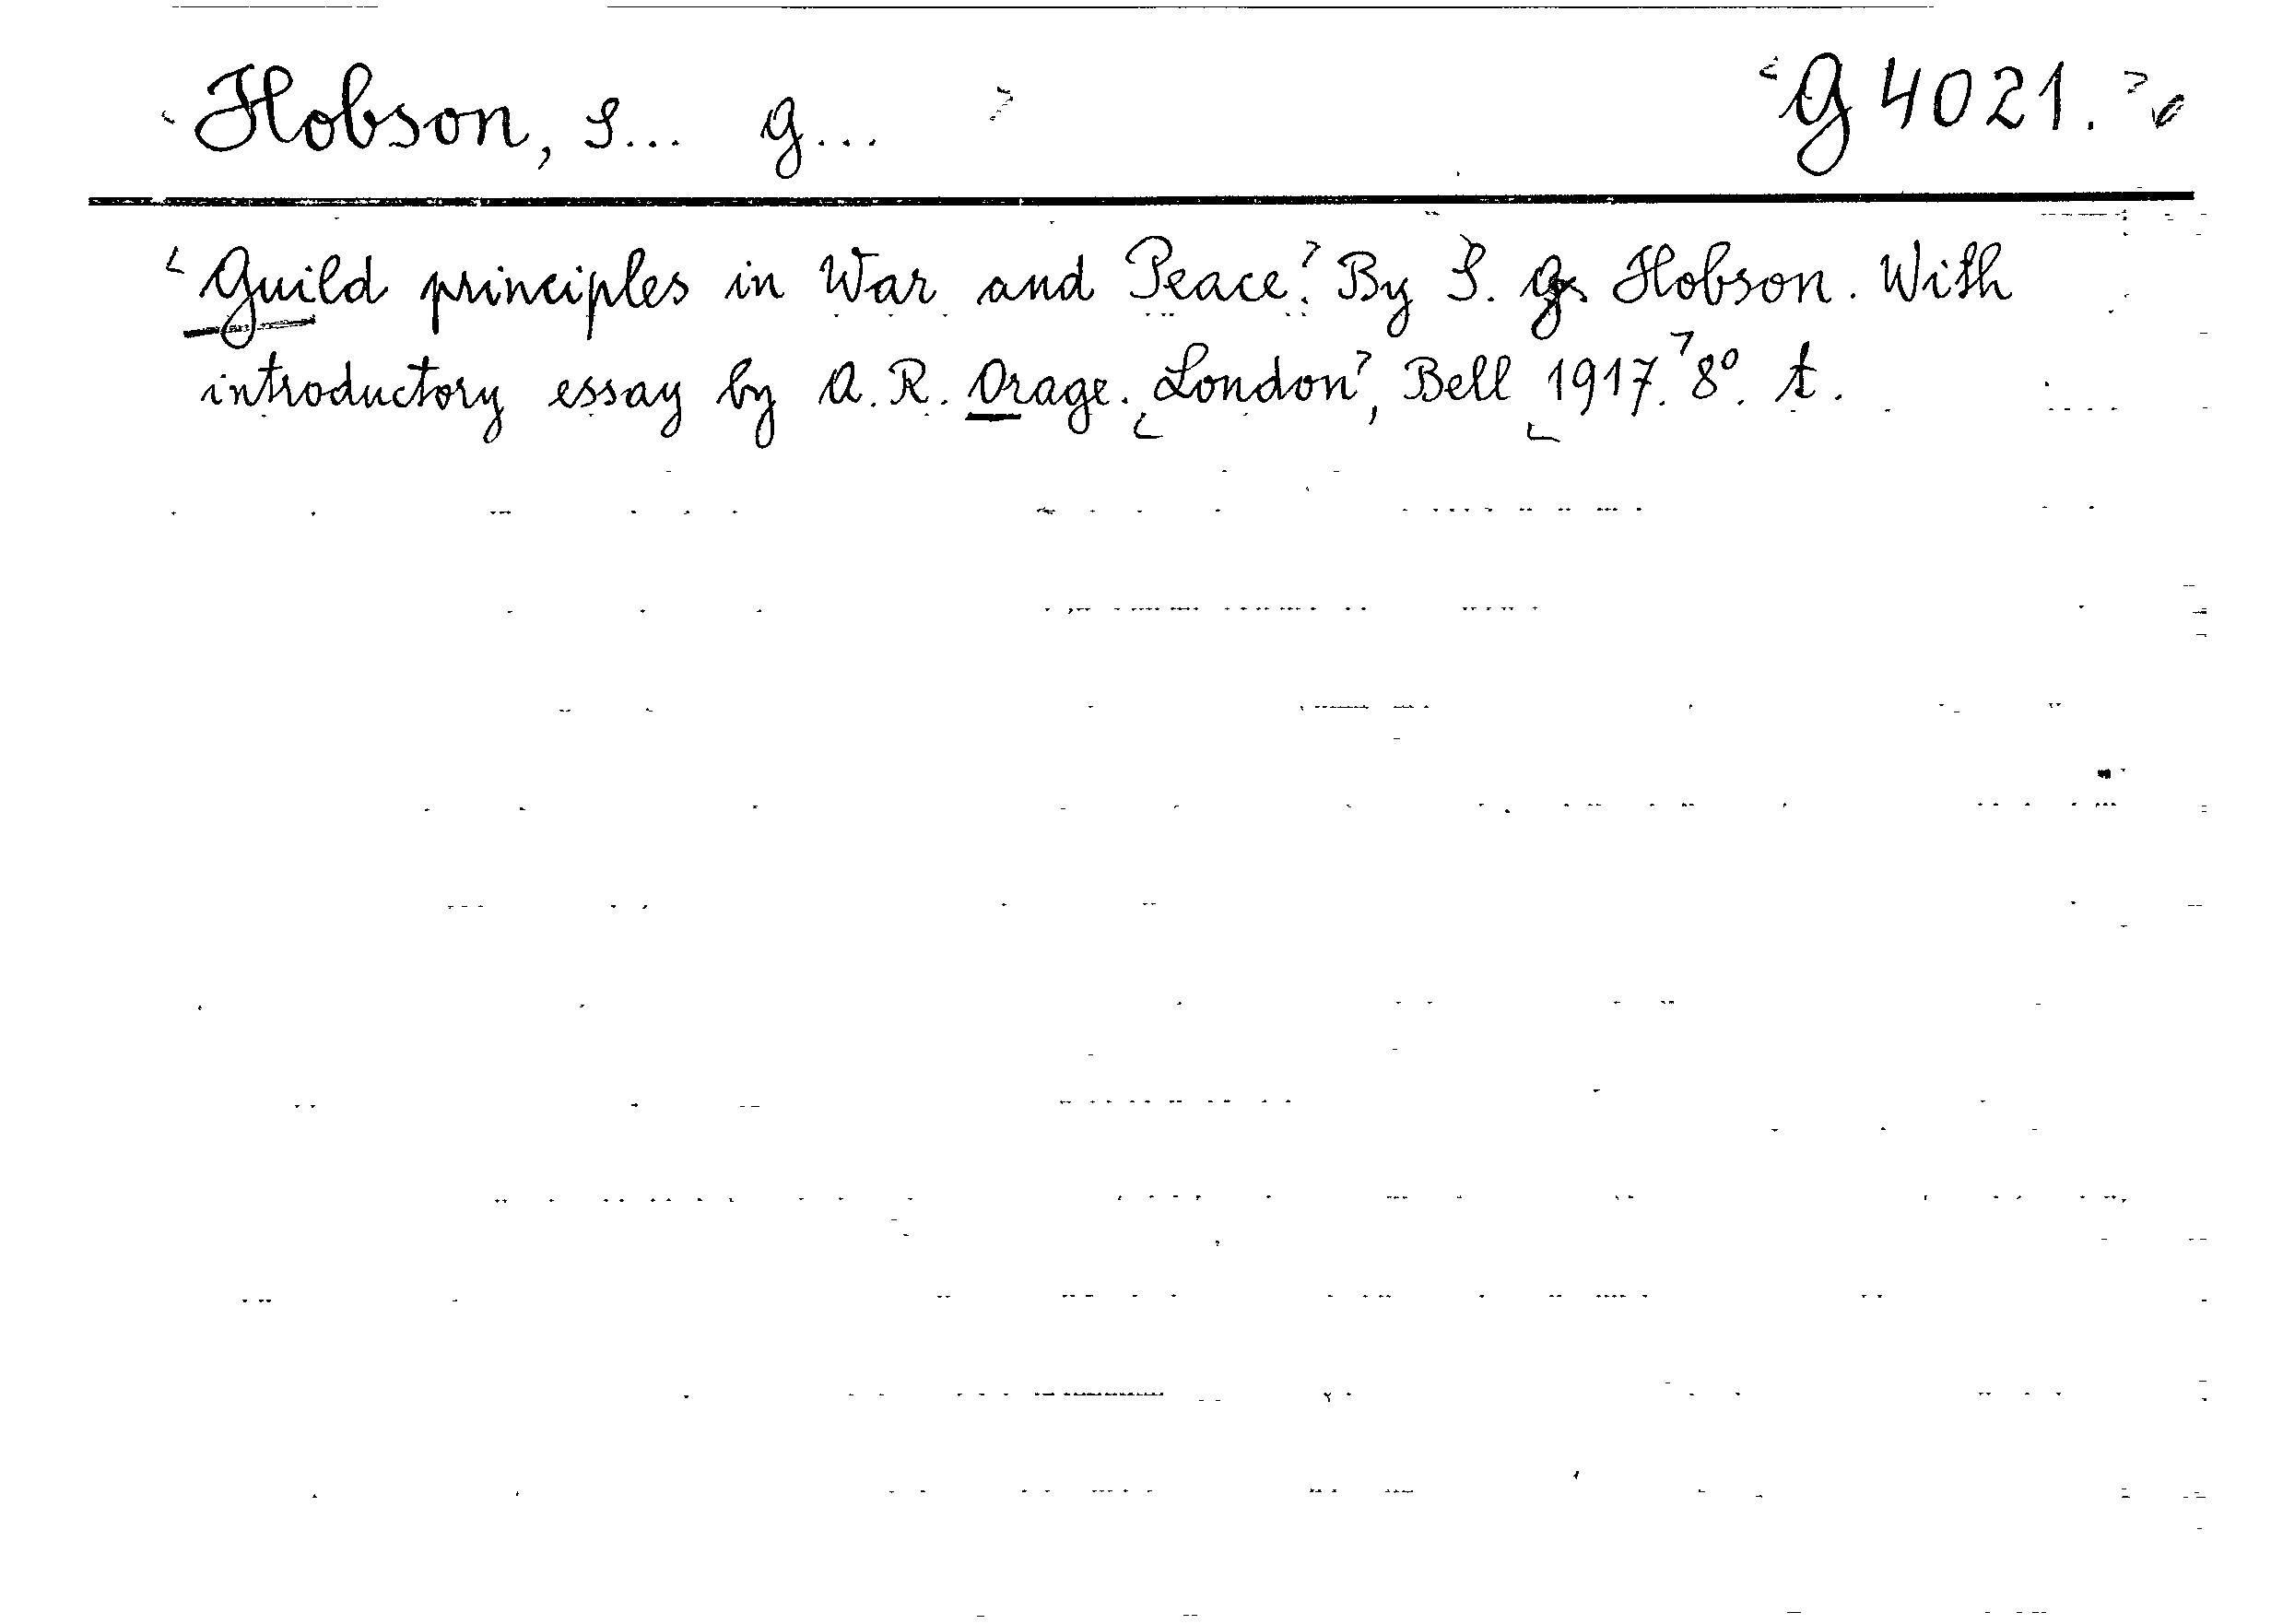 Hobson, S... G... G 4021.
Guild principles in War and Peace. By S. G. Hobson. With
introductory essay by A. R. Orage. London, Bell 1917. 8°. t.